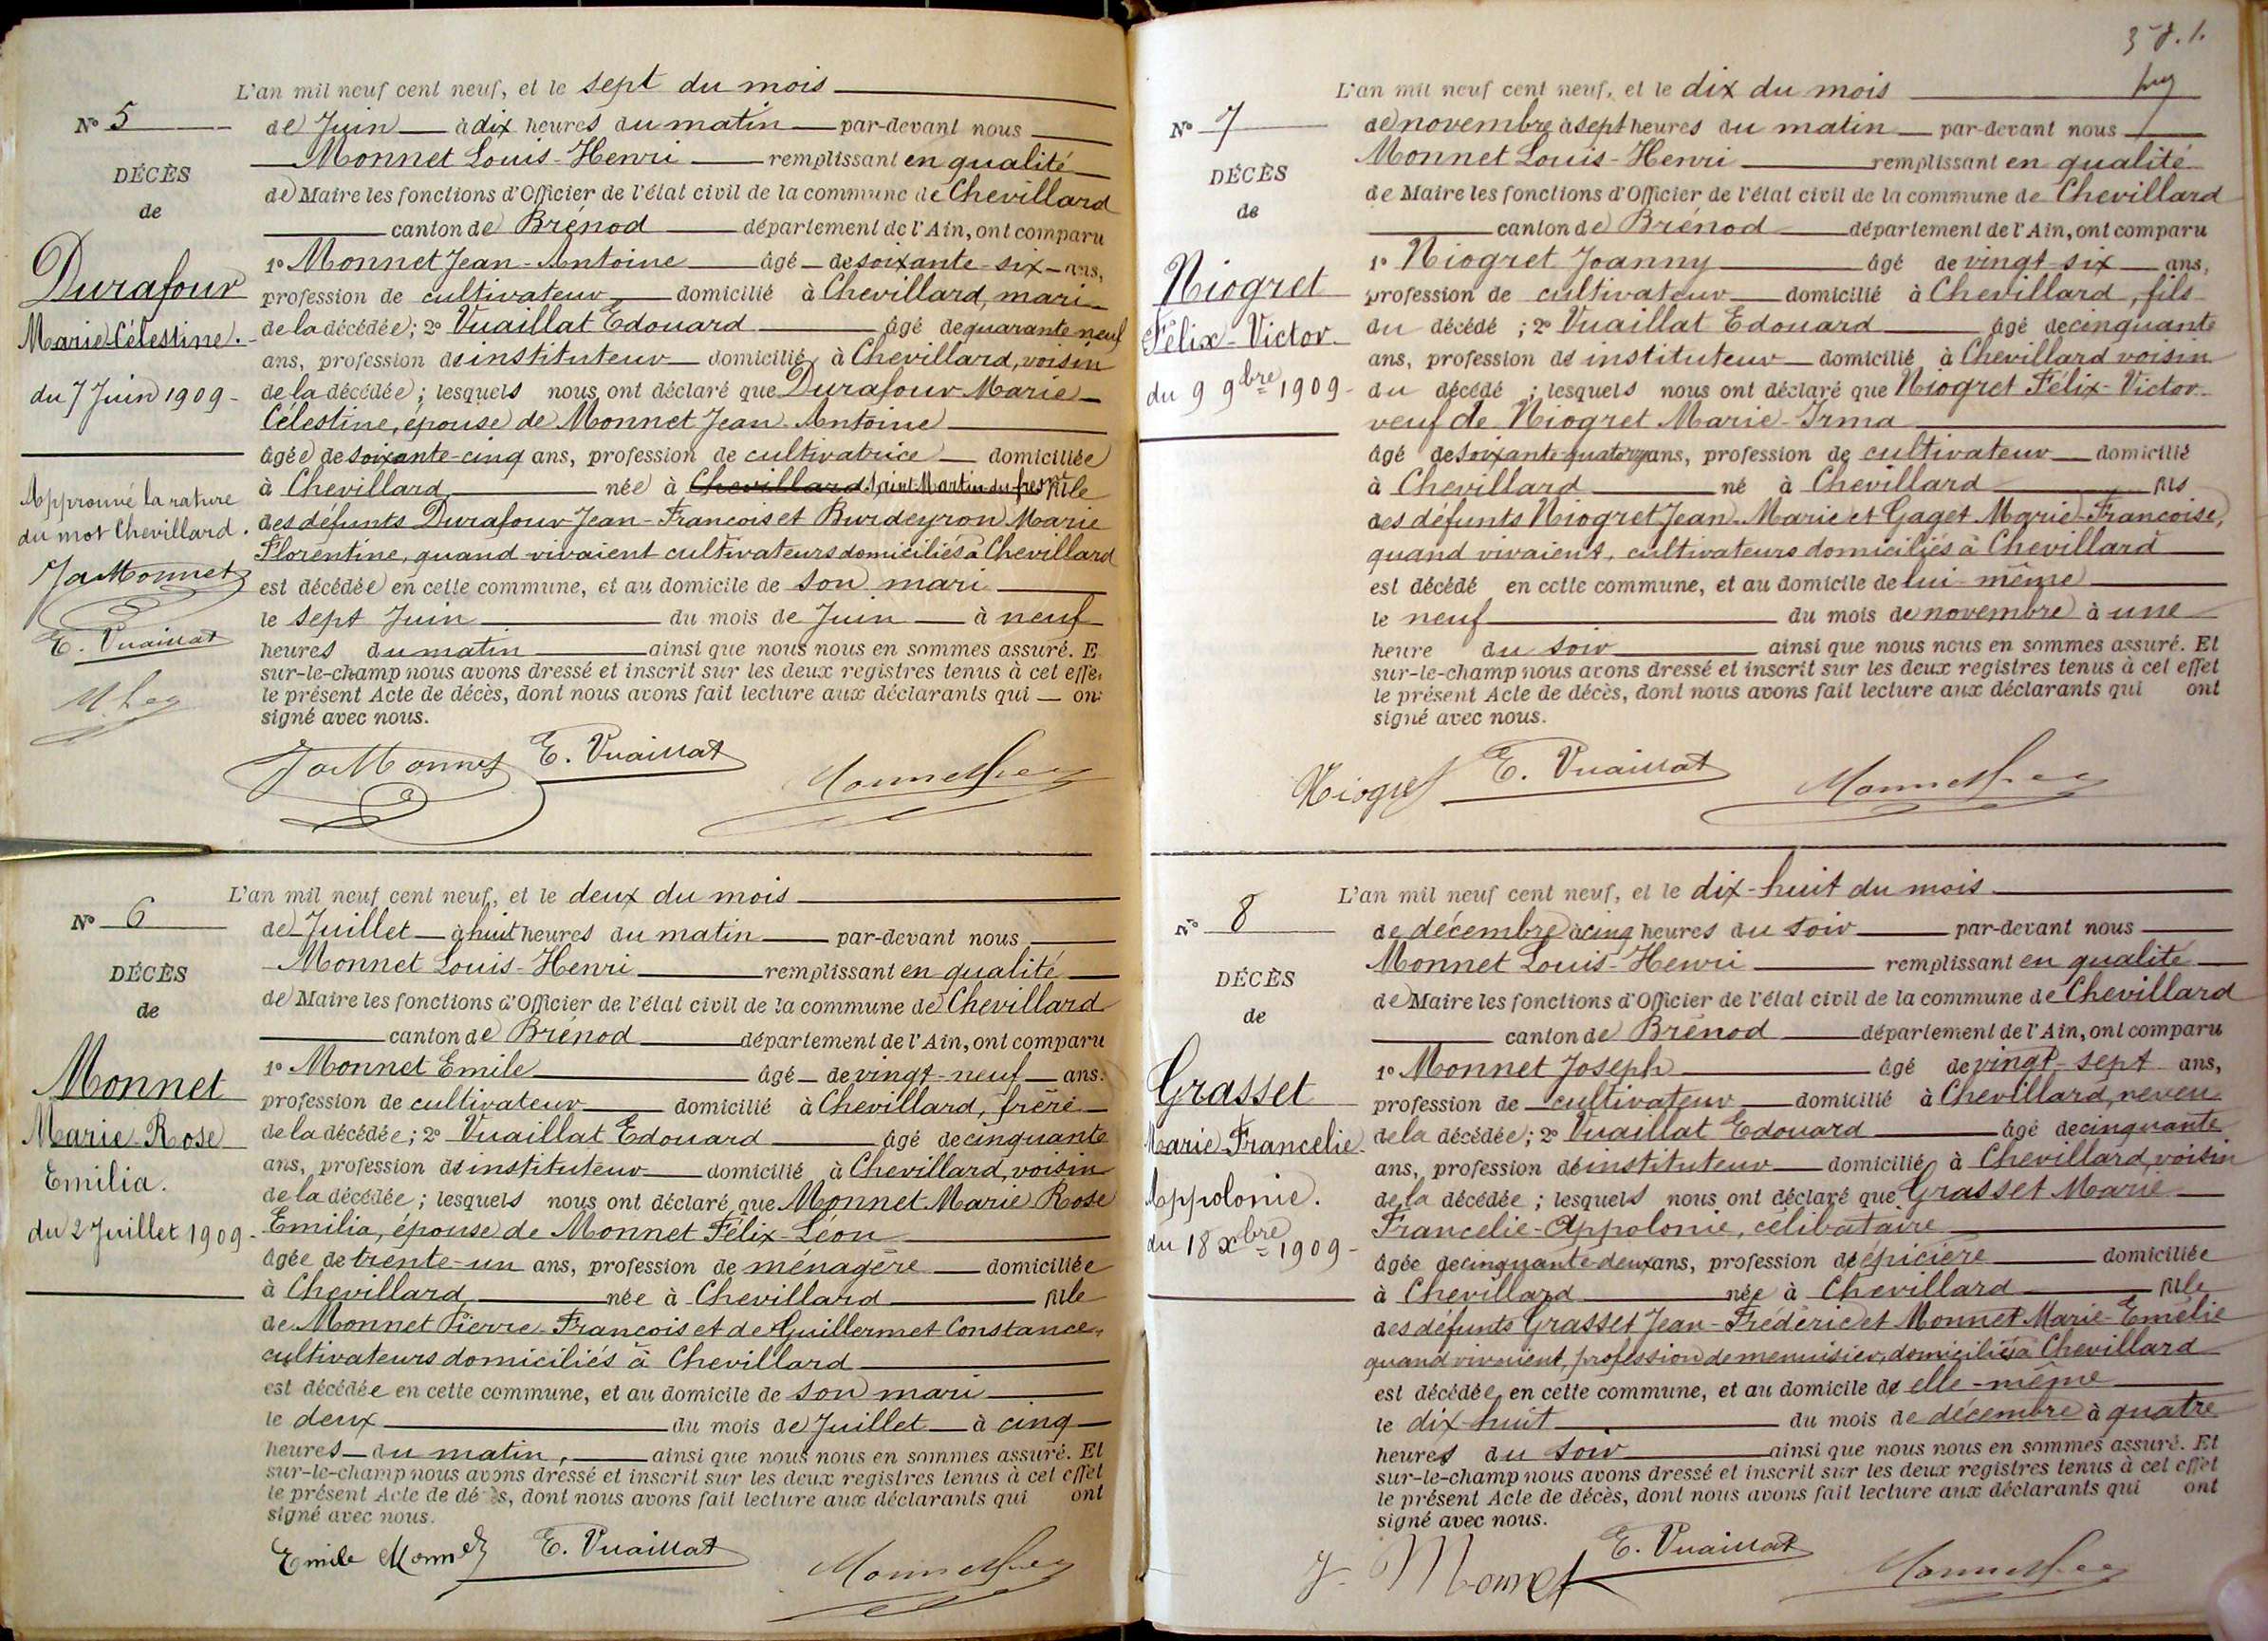 L'an mil neuf cent neuf, et le sept du mois
N° 5
de Juin à dix heures du matin par-devant nous
Monnet Louis-Henri remplissant en qualité
DÉCÈS
de Maire les fonctions d'Officier de l'état civil de la commune de Chevillard
de
canton de Brénod département de l'Ain, ont comparu
1° Monnet Jean-Antoine âgé de soixante-six ans,
Durafour
profession de cultivateur domicilié à Chevillard, mari
Marie Célestine.
de la décédée; 2° Vuaillat Edouard âgé de quarante neuf
ans, profession de instituteur domicilié à Chevillard, voisin
du 7 Juin 1909
de la décédée; lesquels nous ont déclaré que Durafour Marie
Célestine, épouse de Monnet Jean Antoine
âgée de soixante-cinq ans, profession de cultivatrice domiciliée
à Chevillard née à Chevillard Saint Martin du fresne fille
Approuvé la rature
des défunts Durafour Jean-François et Burdeyron Marie
du mot Chevillard.
Florentine, quand vivaient cultivateurs domiciliés à Chevillard
JaMonnet
est décédée en cette commune, et au domicile de son mari
le sept Juin du mois de Juin à neuf
E. Vuaillat
heures du matin ainsi que nous nous en sommes assuré. E
sur-le-champ nous avons dressé et inscrit sur les deux registres tenus à cet effe
le présent Acte de décès, dont nous avons fait lecture aux déclarants qui on
signé avec nous.
JaMonnet E. Vuaillat Monnet
L'an mil neuf cent neuf, et le deux du mois
N° 6
de Juillet à huit heures du matin par-devant nous
Monnet Louis-Henri remplissant en qualité
DÉCÈS
de Maire les fonctions d'Officier de l'état civil de la commune de Chevillard
de
canton de Brénod département de l'Ain, ont comparu
1° Monnet Emile âgé de vingt-neuf ans.
Monnet
profession de cultivateur domicilié à Chevillard, frère
Marie-Rose
de la décédée; 2° Vuaillat Edouard âgé de cinquante
ans, profession de instituteur domicilié à Chevillard, voisin
Emilia.
de la décédée; lesquels nous ont déclaré que Monnet Marie Rose
du 2 Juillet 1909
Emilia, épouse de Monnet Félix-Léon
âgée de trente-un ans, profession de ménagère domiciliée
à Chevillard née à Chevillard fille
de Monnet Pierre-François et de Guillermet Constance,
cultivateurs domiciliés à Chevillard
est décédée en cette commune, et au domicile de son mari
le deux du mois de Juillet à cinq
heures du matin, ainsi que nous nous en sommes assuré. Et
sur-le-champ nous avons dressé et inscrit sur les deux registres tenus à cet effet
le présent Acte de décès, dont nous avons fait lecture aux déclarants qui ont
signé avec nous.
Emile Monnet E. Vuaillat Monnet
L'an mil neuf cent neuf, et le dix du mois
N° 7
de novembre à sept heures du matin par-devant nous
Monnet Louis-Henri remplissant en qualité
DÉCÈS
de Maire les fonctions d'Officier de l'état civil de la commune de Chevillard
de
canton de Brénod département de l'Ain, ont comparu
1° Niogret Joanny âgé de vingt-six ans,
Niogret
profession de cultivateur domicilié à Chevillard, fils
Félix-Victor
du décédé; 2° Vuaillat Edouard âgé de cinquante
ans, profession de instituteur domicilié à Chevillard voisin
du 9 9bre 1909
du décédé; lesquels nous ont déclaré que Niogret Félix-Victor
veuf de Niogret Marie-Irma
âgé de soixante-quatorze ans, profession de cultivateur domicilié
à Chevillard né à Chevillard fils
des défunts Niogret Jean-Marie et Gaget Marie-Françoise,
quand vivaient, cultivateurs domiciliés à Chevillard
est décédé en cette commune, et au domicile de lui-même
le neuf du mois de novembre à une
heure du soir ainsi que nous nous en sommes assuré. Et
sur-le-champ nous avons dressé et inscrit sur les deux registres tenus à cet effet
le présent Acte de décès, dont nous avons fait lecture aux déclarants qui ont
signé avec nous.
Niogret E. Vuaillat Monnet
L'an mil neuf cent neuf, et le dix-huit du mois
N° 8
de décembre à cinq heures du soir par-devant nous
Monnet Louis-Henri remplissant en qualité
DÉCÈS
de Maire les fonctions d'Officier de l'état civil de la commune de Chevillard
de
canton de Brénod département de l'Ain, ont comparu
1° Monnet Joseph âgé de vingt-sept ans,
Grasset
profession de cultivateur domicilié à Chevillard, neveu
Marie-Francelie
de la décédée; 2° Vuaillat Edouard âgé de cinquante
ans, profession de instituteur domicilié à Chevillard, voisin
Appolonie.
de la décédée; lesquels nous ont déclaré que Grasset Marie
Francelie-Appolonie, célibataire
du 18 xbre 1909
âgée de cinquante-deux ans, profession de épicière domiciliée
à Chevillard née à Chevillard fille
des défunts Grasset Jean-Frédéric et Monnet Marie-Emélie
quand vivaient, profession de menuisier, domiciliés à Chevillard
est décédée en cette commune, et au domicile de elle-même
le dix-huit du mois de décembre à quatre
heures du soir ainsi que nous nous en sommes assuré. Et
sur-le-champ nous avons dressé et inscrit sur les deux registres tenus à cet effet
le présent Acte de décès, dont nous avons fait lecture aux déclarants qui ont
signé avec nous.
J. Monnet E. Vuaillat Monnet